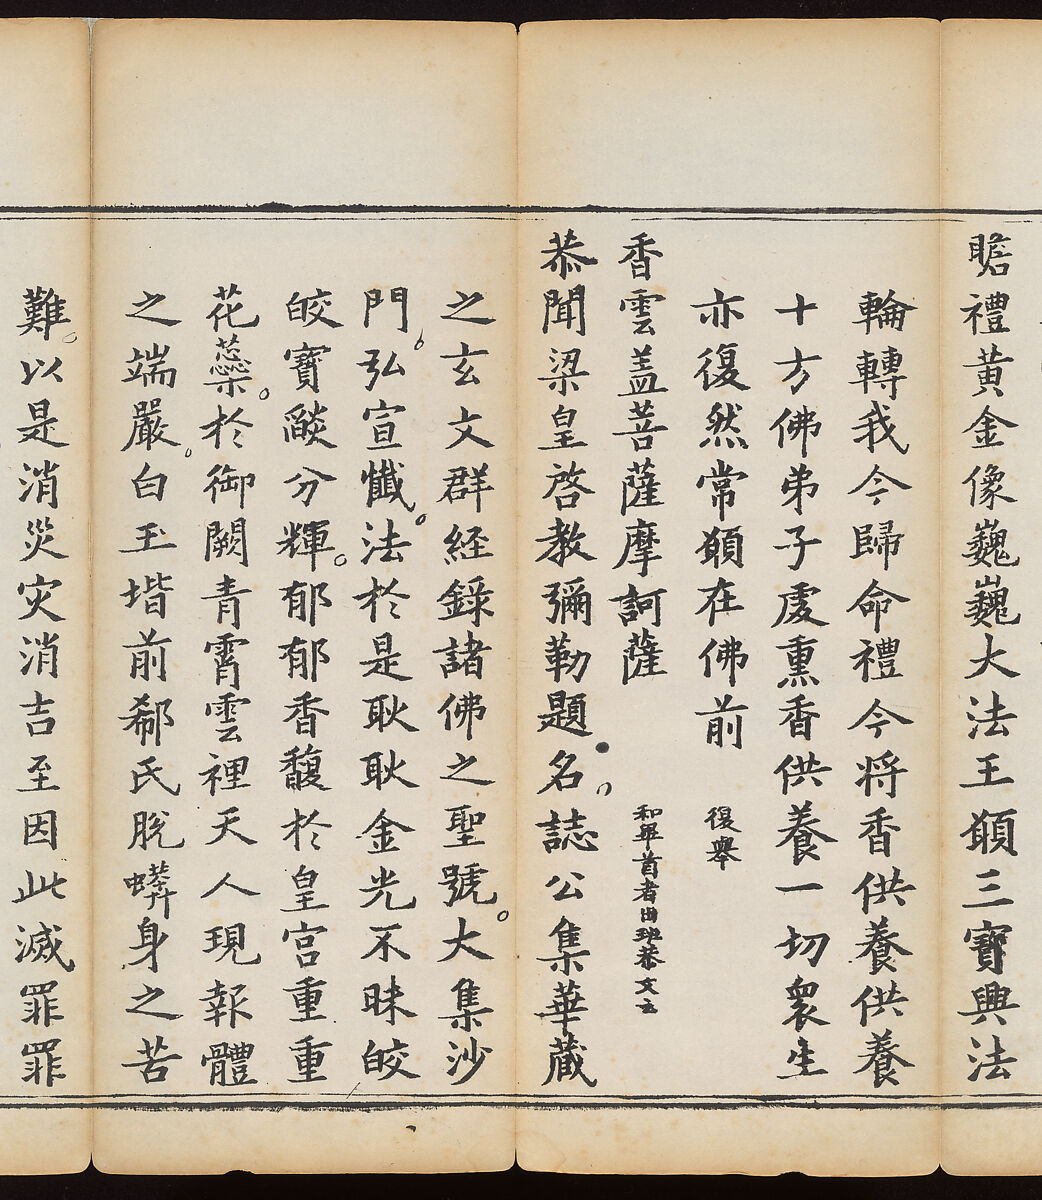 瞻禮黃金像巍巍大法王願三寶興法
輪轉我今歸命禮今将香供養供養
十方佛弟子處熏香供養一切衆生
亦復然常願在佛前 復舉
香雲盖菩薩摩訶薩 和畢首者出班恭文云
恭聞梁皇啓教彌勒題名。誌公集華藏
之玄文群經錄諸佛之聖號。大集沙
門。弘宣懺。法於是耿耿金光不昧皎
皎寶燄分輝。郁郁香馥於皇宫重重
花蘂。於御闕青霄雲裡天人現報體
之端嚴。白玉堦前郗氏脫蟒身之苦
難。以是消災灾消吉至因此滅罪罪